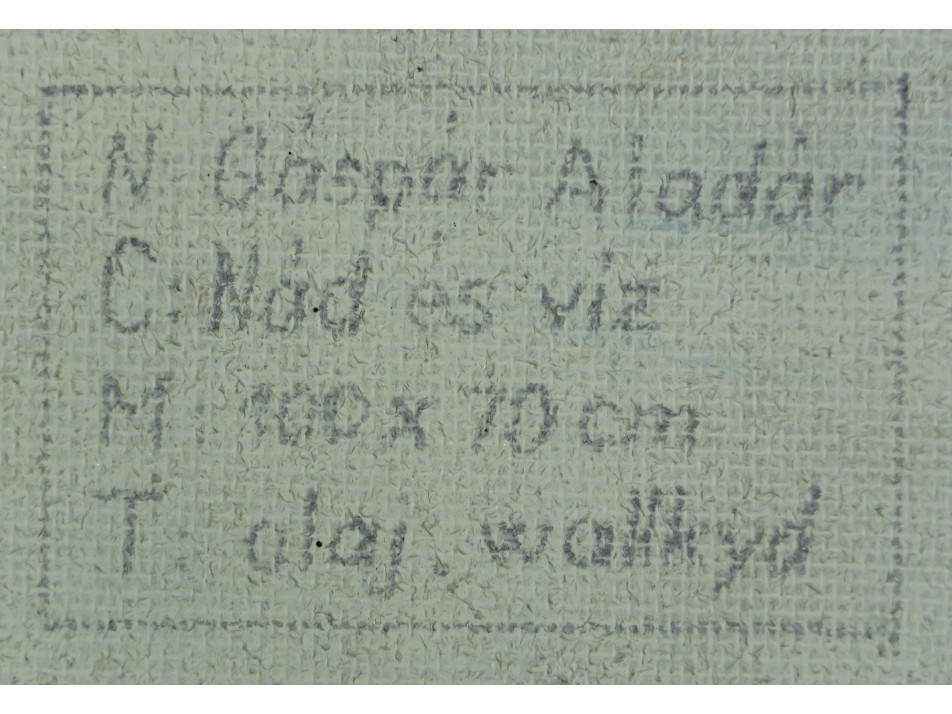 N: Gáspár Aladár
C: Nád és víz
M: 100 x 70 cm
T: olaj,